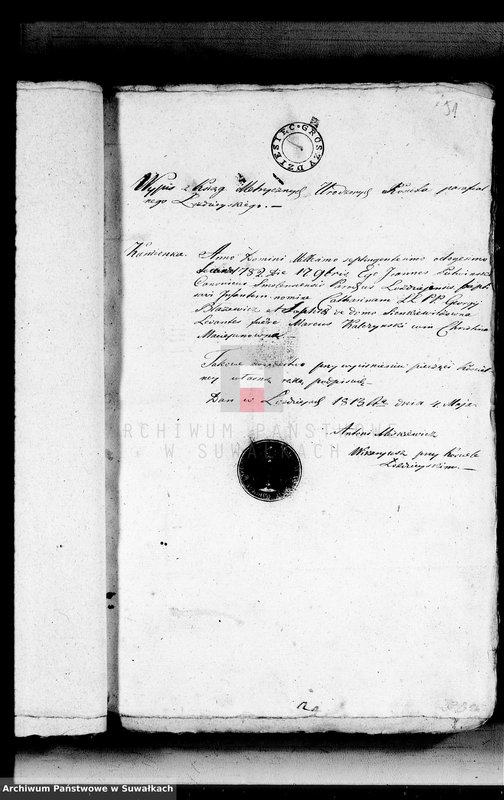 51
DZIESIĘC GROSZY
Wypis z Xiąg Metrycznych Urodzonych Kościoła parafial
nego Łozdzieyskiego. —
Kamionka. Anno Domini Millesimo septingentesimo octogesimo
secundo 1782 die 17 9bris Ego Joannes
Canonicus Smolenscensis Parochus Lozdziejensis bapti
zavi Infantem nomine Catharinam LL PP Georgij
Błazewicz et Sophiæ de domo Sienkiewiczowna
Levantes fuere Marcus Kalczynski cum Christina
Maciejunowna
Takowe świadectwo przy wyciśnieniu pieczęci Kościel
ney własną ręką podpisuię
Dan w Łozdzieiach 1813 Rku dnia 4 Maja
Antoni Miskiewicz
Wikaryusz przy Kościele
Łozdzieyskim —
ARCHIWUM PAŃSTWOWE
W SUWAŁKACH
Archiwum Państwowe w Suwałkach